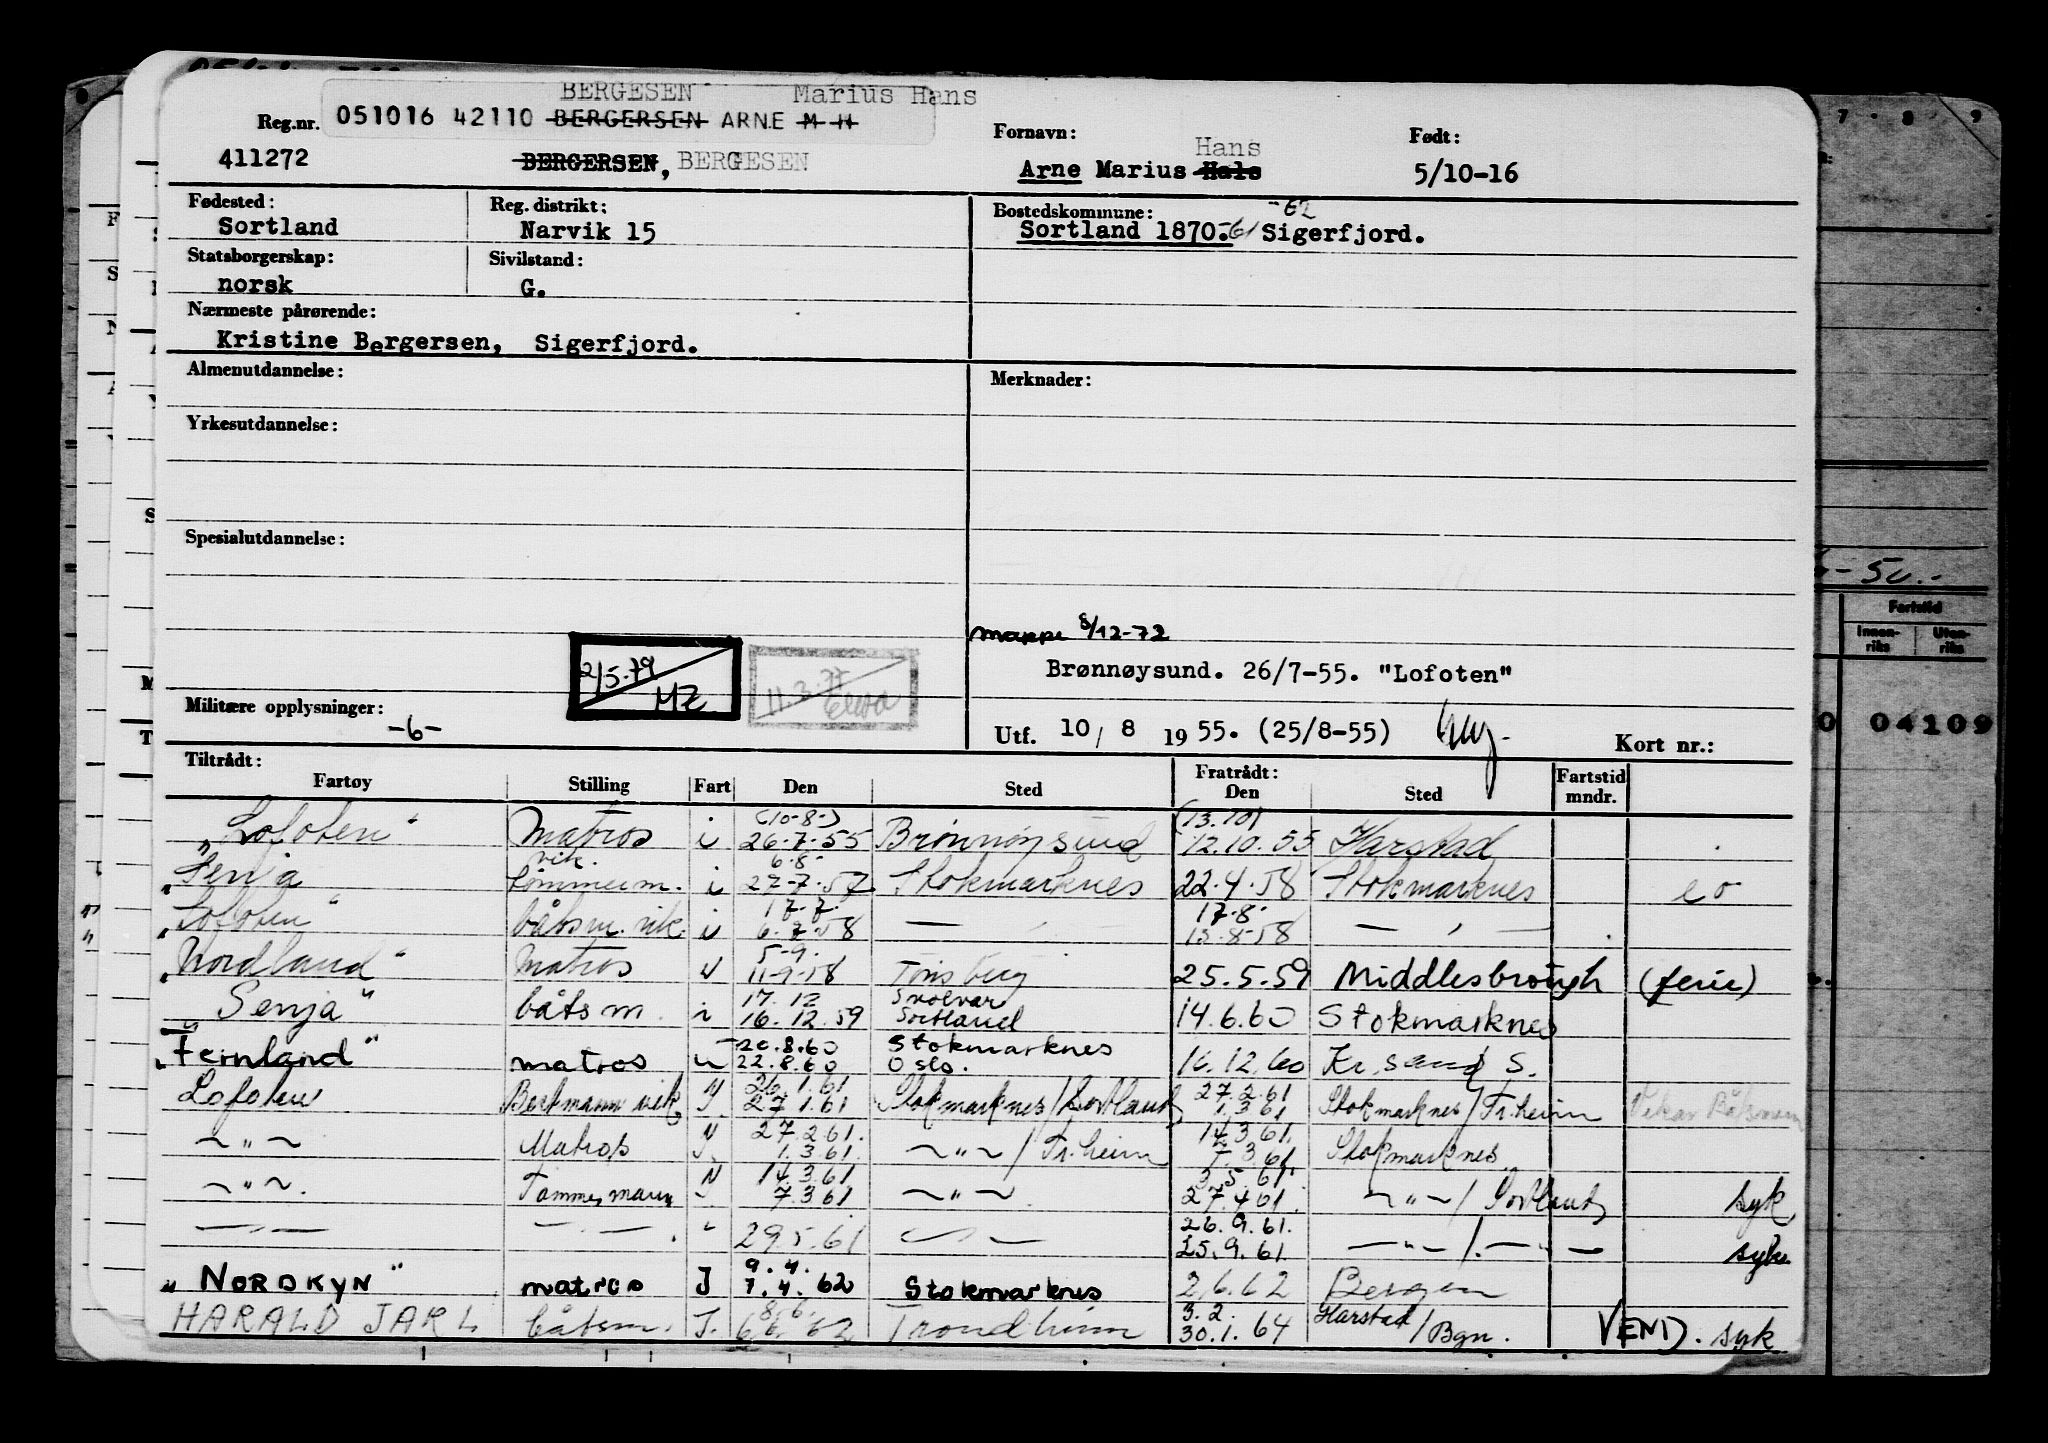 BERGESEN Marius Hans
Reg.nr. 051016 42110 BERGERSEN ARNE M H Fornavn: Hans Født:
411272 BERGERSEN, BERGESEN Arne Marius Hals 5/10-16
Fødested: Reg. distrikt: Bostedskommune: -62
Sortland Narvik 15 Sortland 1870.-61 Sigerfjord.
Statsborgerskap: Sivilstand:
norsk G.
Nærmeste pårørende:
Kristine Bergersen, Sigerfjord.
Almenutdannelse: Merknader:
Yrkesutdannelse:
Spesialutdannelse:
mappe 8/12-72
2/5-79 MZ 11.3.77
Brønnøysund. 26/7-55. "Lofoten"
Militære opplysninger: -6- Utf. 10/8 1955. (25/8-55) Kort nr.:
Tiltrådt: Fratrådt: Fartstid
Fartøy Stilling Fart Den Sted Den Sted mndr.
(10-8-) (13.10)
"Lofoten" Matros i 26.7.55 Brønnøysund 12.10.55 Harstad
vik. 6.8.
"Senja Tømmerm. i 27.7.57 Stokmarknes 22.4.58 Stokmarknes eo
17.7. 17.8.
"Lofoten" båtsm. vik. i 6.7.58 — 15.8.58 — " —
5-9.
"Nordland" Matros u 11-9-58 Tønsberg 25.5.59 Middlesbrough (ferie)
17.12 Svolvær
"Senja" båtsm. i 16.12.59 Sortland 14.6.60 Stokmarknes
20.8.60 Stokmarknes
"Fernland" matros u 22.8.60 Oslo. 16.12.60 Kr.sand S.
26.1.61 27.2.61
Lofoten Bestmann vik. J 27.1.61 Stokmarknes/Sortland 1.3.61 Stokmarknes/Tr.heim Vikar Båtsmann
27.2.61. 14.3.61.
~ " ~ Matros J. 1.3.61. ~ " ~ / Tr.heim 7.3.61 Stokmarknes
14.3.61 3.5.61
~ " ~. Tømmermann " 7.3.61 ~ " ~ 27.4.61. ~ " ~ / Sortland syk
26.9.61.
— — — — " 29.5.61 — — 25.9.61. — " — / . — " — syk
9.4.
"NORDKYN" matros J 7.4.62 Stokmarknes 2.6.62 Bergen
8.6. 3.2. Harstad
HARALD JARL båtsm. J. 6.6.62 Trondheim 30.1.64 /Bgn. VEND. syk
7 . 8 . 9
-50.-
Fartstid
Innen-riks Uten-riks
0 04109